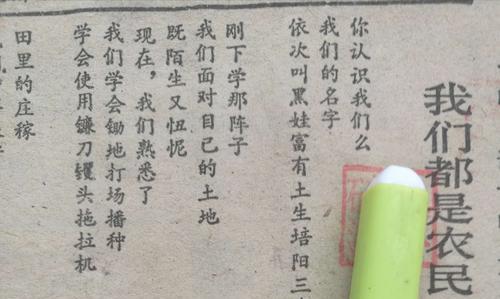 我们都是农民
你认识我们么
我们的名字
依次叫黑娃富有土生培阳三
刚下学那阵子
我们面对自己的土地
既陌生又忸怩
现在，我们熟悉了
我们学会锄地打场播种
学会使用镰刀䦆头拖拉机
田里的庄稼